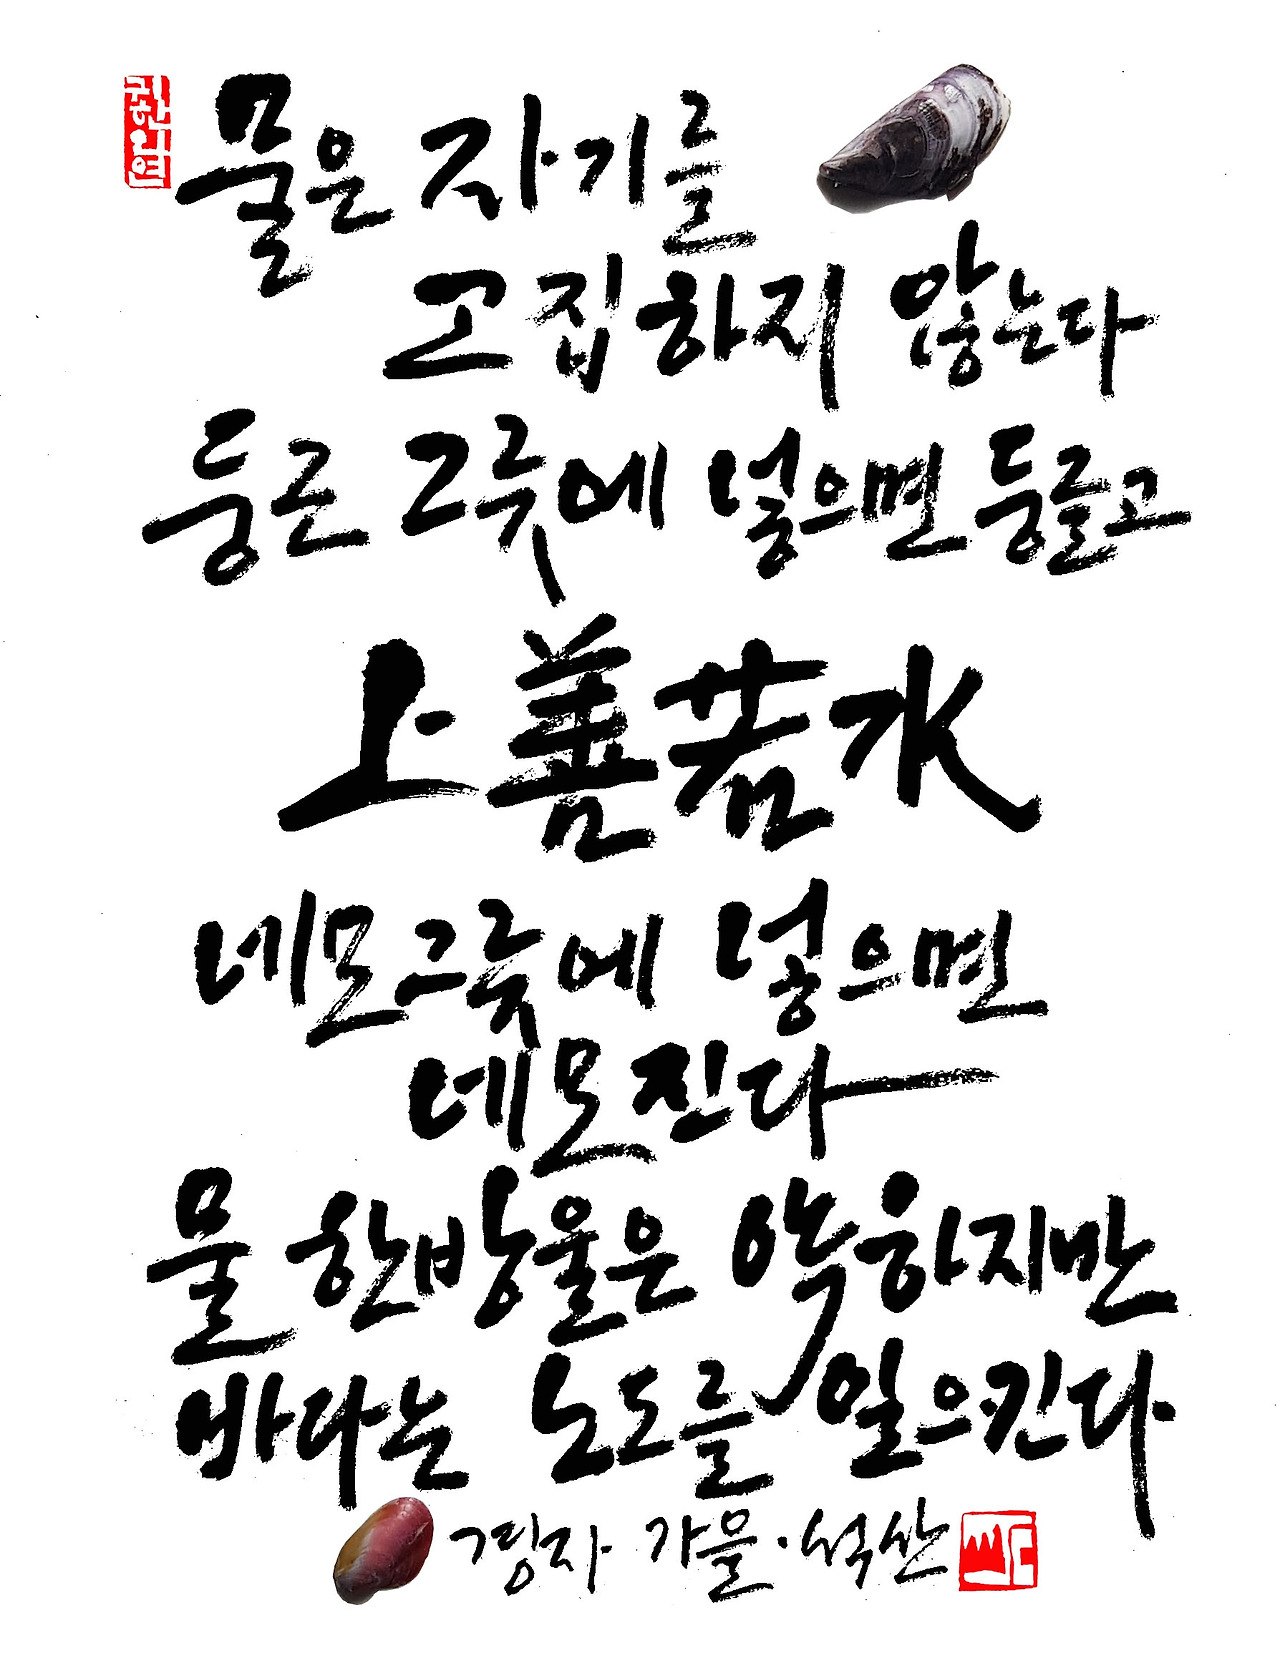 귀한인연
물은 자기를
고집하지 않는다
둥근 그릇에 넣으면 둥글고
上善若水
네모그릇에 넣으면
네모진다
물 한방울은 약하지만
바다는 노도를 일으킨다
경자 가을·석산